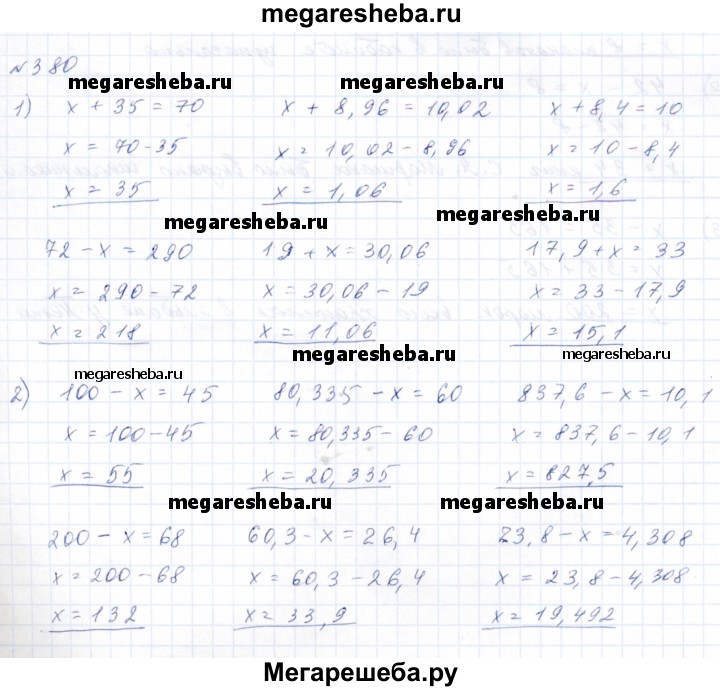 megaresheba.ru
№380
megaresheba.ru megaresheba.ru
1) x + 35 = 70 x + 8,96 = 10,02 x + 8,4 = 10
x = 70 - 35 x = 10,02 - 8,96 x = 10 - 8,4
x = 35 x = 1,06 x = 1,6
megaresheba.ru
72 - x = 290 19 + x = 30,06 17,9 + x = 33
x = 290 - 72 x = 30,06 - 19 x = 33 - 17,9
x = 218 x = 11,06 x = 15,1
megaresheba.ru megaresheba.ru
2) 100 - x = 45 80,335 - x = 60 837,6 - x = 10,1
x = 100 - 45 x = 80,335 - 60 x = 837,6 - 10,1
x = 55 x = 20,335 x = 827,5
megaresheba.ru megaresheba.ru
200 - x = 68 60,3 - x = 26,4 23,8 - x = 4,308
x = 200 - 68 x = 60,3 - 26,4 x = 23,8 - 4,308
x = 132 x = 33,9 x = 19,492
Мегарешеба.ру